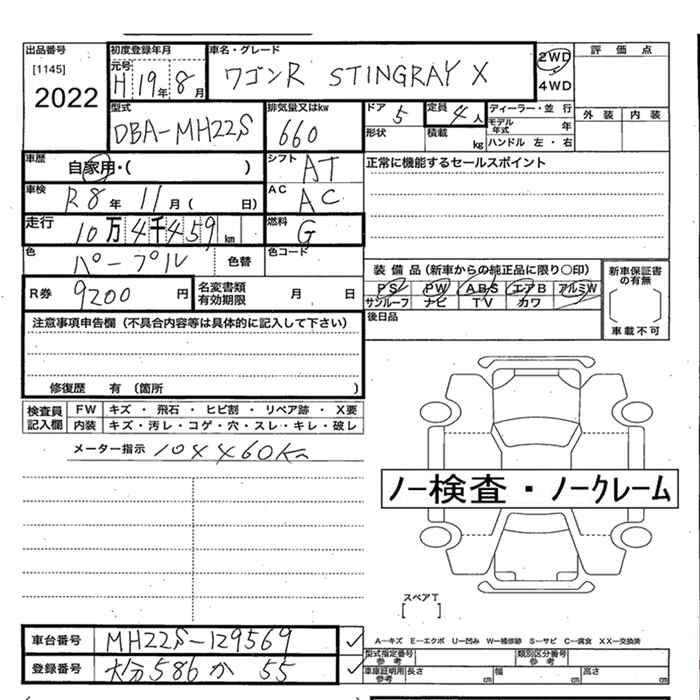 出品番号 初度登録年月 車名・グレード 2WD 評価点
[1145] 元号 H 19年 8月 ワゴンR STINGRAY X 4WD
2022
型式 排気量又はkw ドア 5 定員 4人 ディーラー・並行 外装 内装
DBA-MH22S 660 形状 積載 kg モデル年式 年
ハンドル 左・右
車歴 自家用・( ) シフト AT 正常に機能するセールスポイント
車検 R8年 11月( 日) AC AC
走行 10万4千459km 燃料 G
色 パープル 色替 色コード
装備品(新車からの純正品に限り○印) 新車保証書の有無
R券 9200円 名変書類有効期限 月 日 PS PW ABS エアB アルミW
サンルーフ ナビ TV カワ 車載不可
注意事項申告欄(不具合内容等は具体的に記入して下さい) 後日品
修復歴 有 (箇所 )
検査員 FW キズ・飛石・ヒビ割・リペア跡・X要
記入欄 内装 キズ・汚レ・コゲ・穴・スレ・キレ・破レ
メーター指示 104460Km
ノー検査・ノークレーム
スペアT
[ ]
車台番号 MH22S-129569 A−キズ E−エクボ U−凹み W−補修跡 S−サビ C−腐食 XX−交換済
型式指定番号 参考 類別区分番号 参考
登録番号 大分586 か 55 車庫証明用 参考 長さ cm 幅 cm 高さ cm